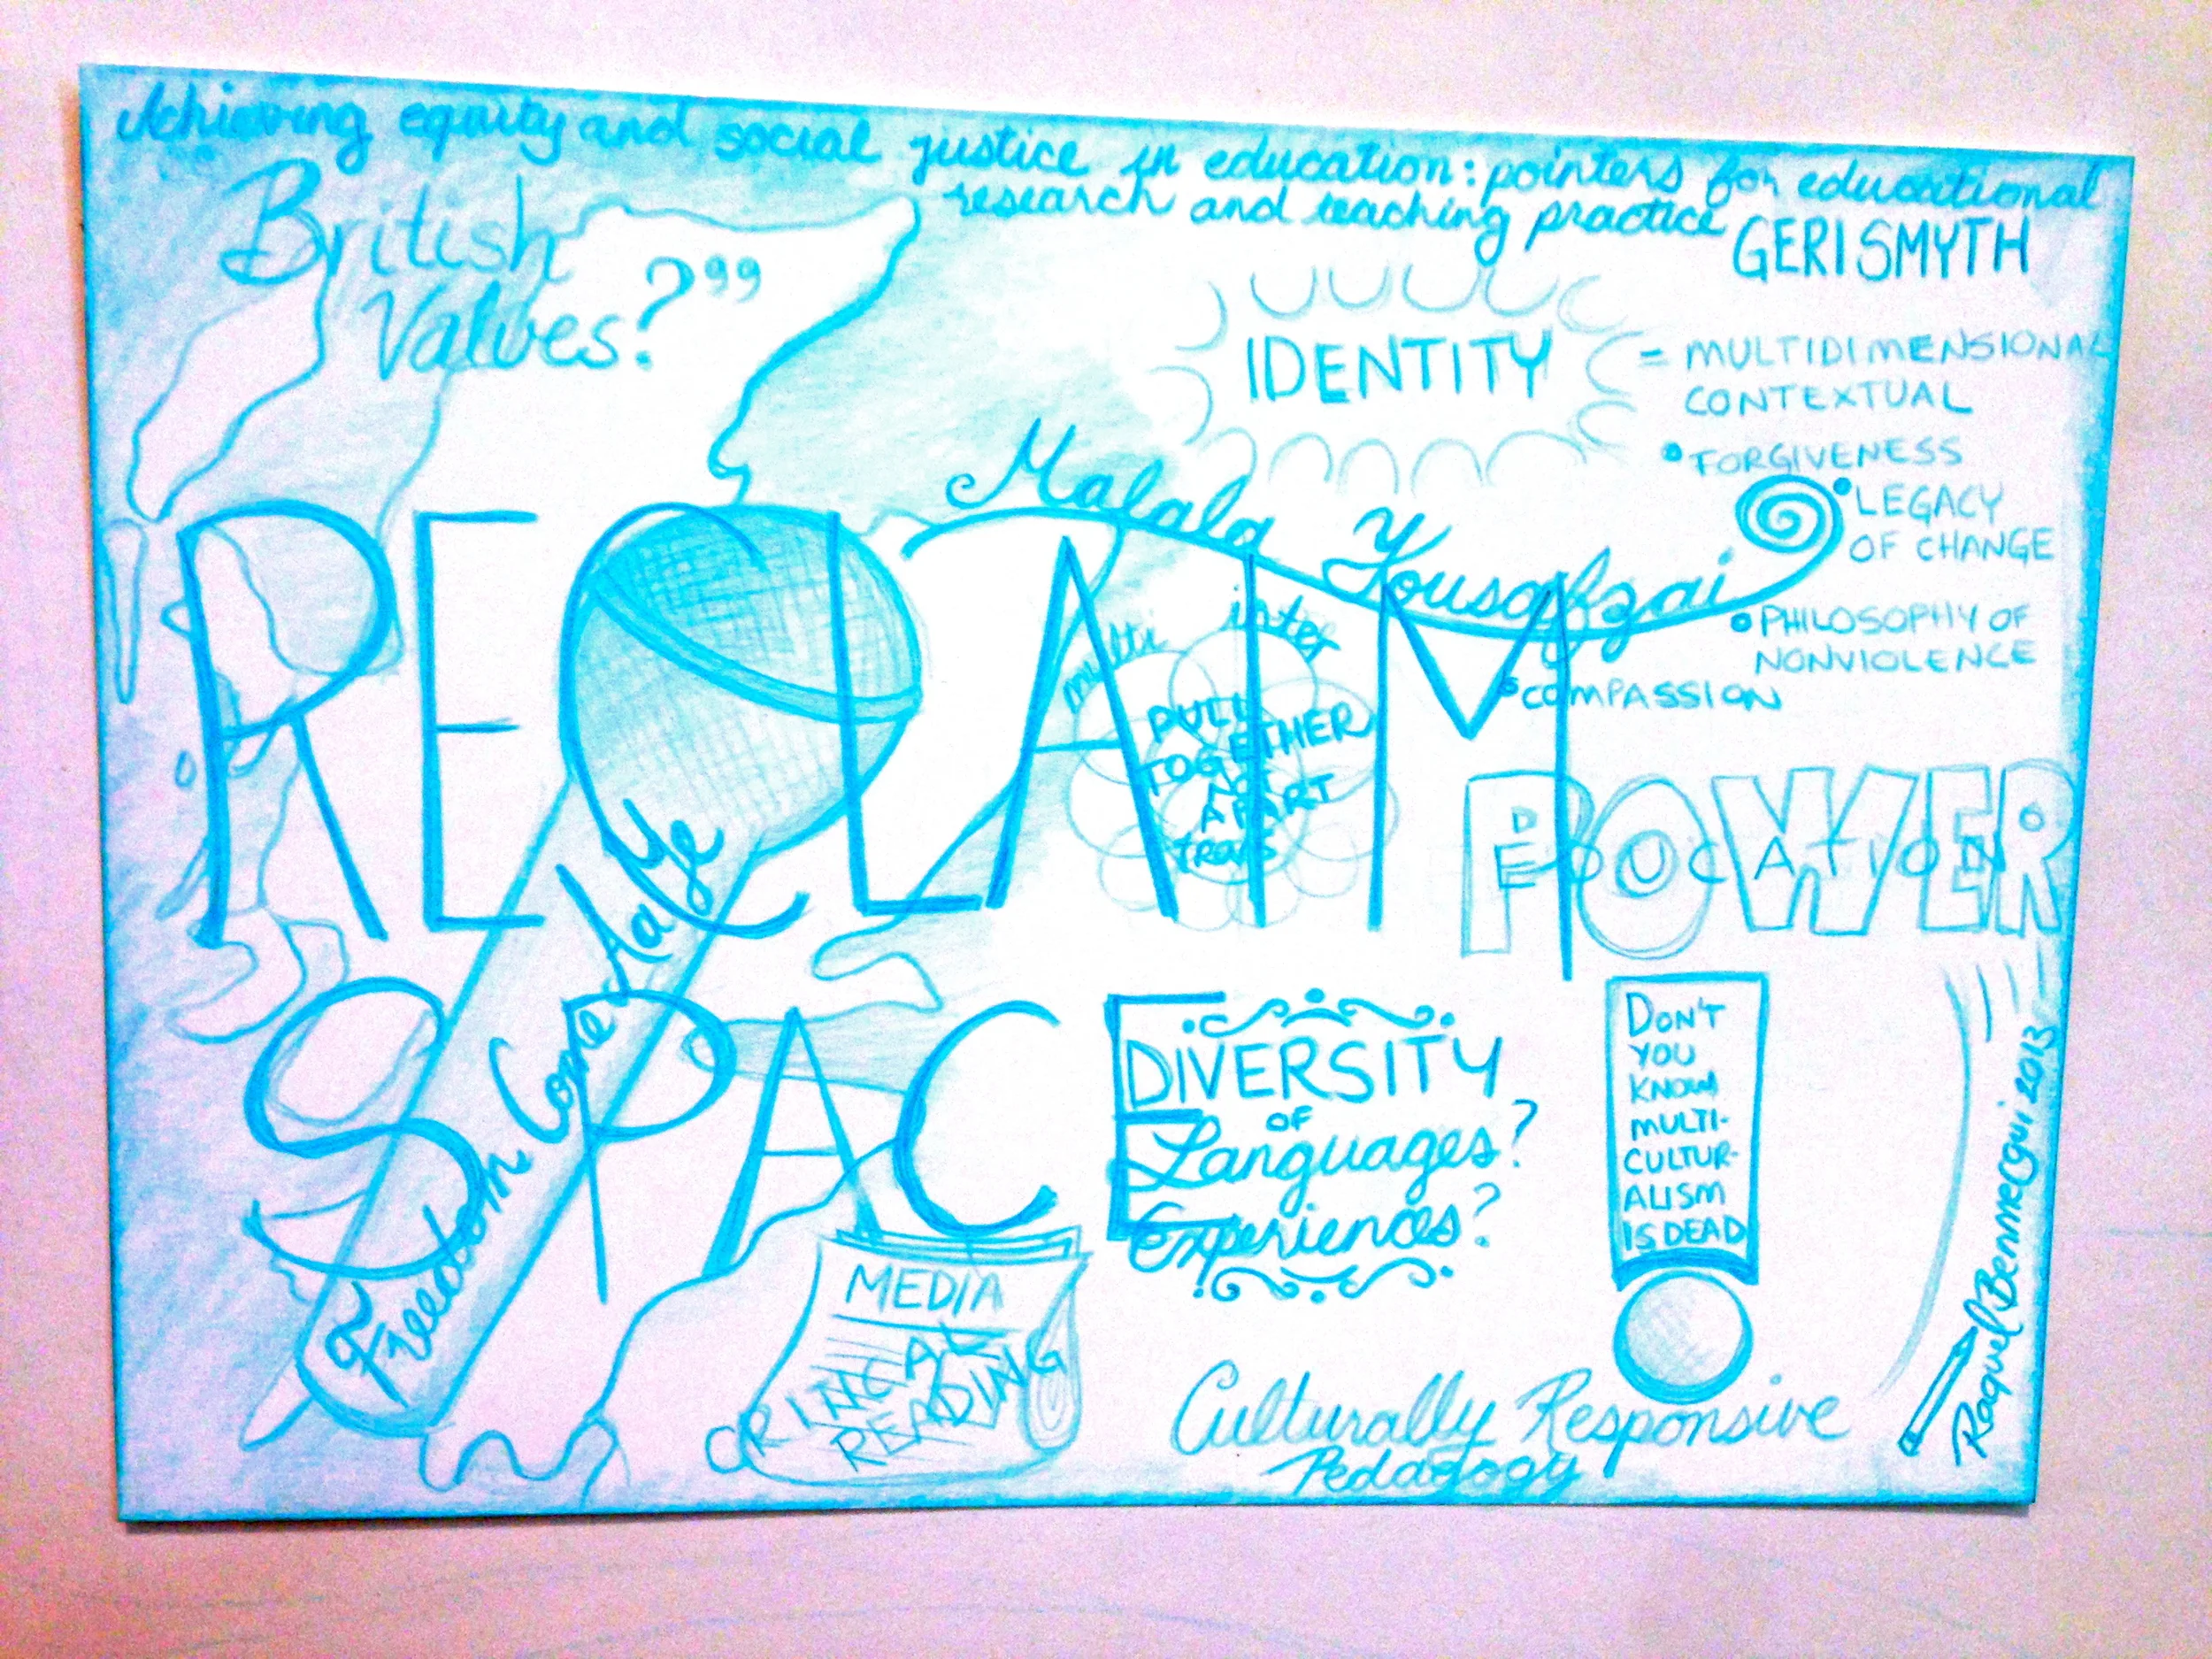 Achieving equity and social justice in education: pointers for educational
research and teaching practice
GERI SMYTH
British
Values?"
IDENTITY
= MULTIDIMENSIONAL
CONTEXTUAL
Malala Yousafzai
• FORGIVENESS
• LEGACY
OF CHANGE
• PHILOSOPHY OF
NONVIOLENCE
• COMPASSION
RECLAIM
SPACE
multi
inter
PULL
TOGETHER
NOT
APART
trans
POWER
EDUCATION
Freedom Come-All-Ye
DIVERSITY
OF
Languages?
Experiences?
DON'T
YOU
KNOW
MULTI-
CULTUR-
ALISM
IS DEAD
MEDIA
CRITICAL
READING
Culturally Responsive
Pedagogy
Raquel Benmergui 2013